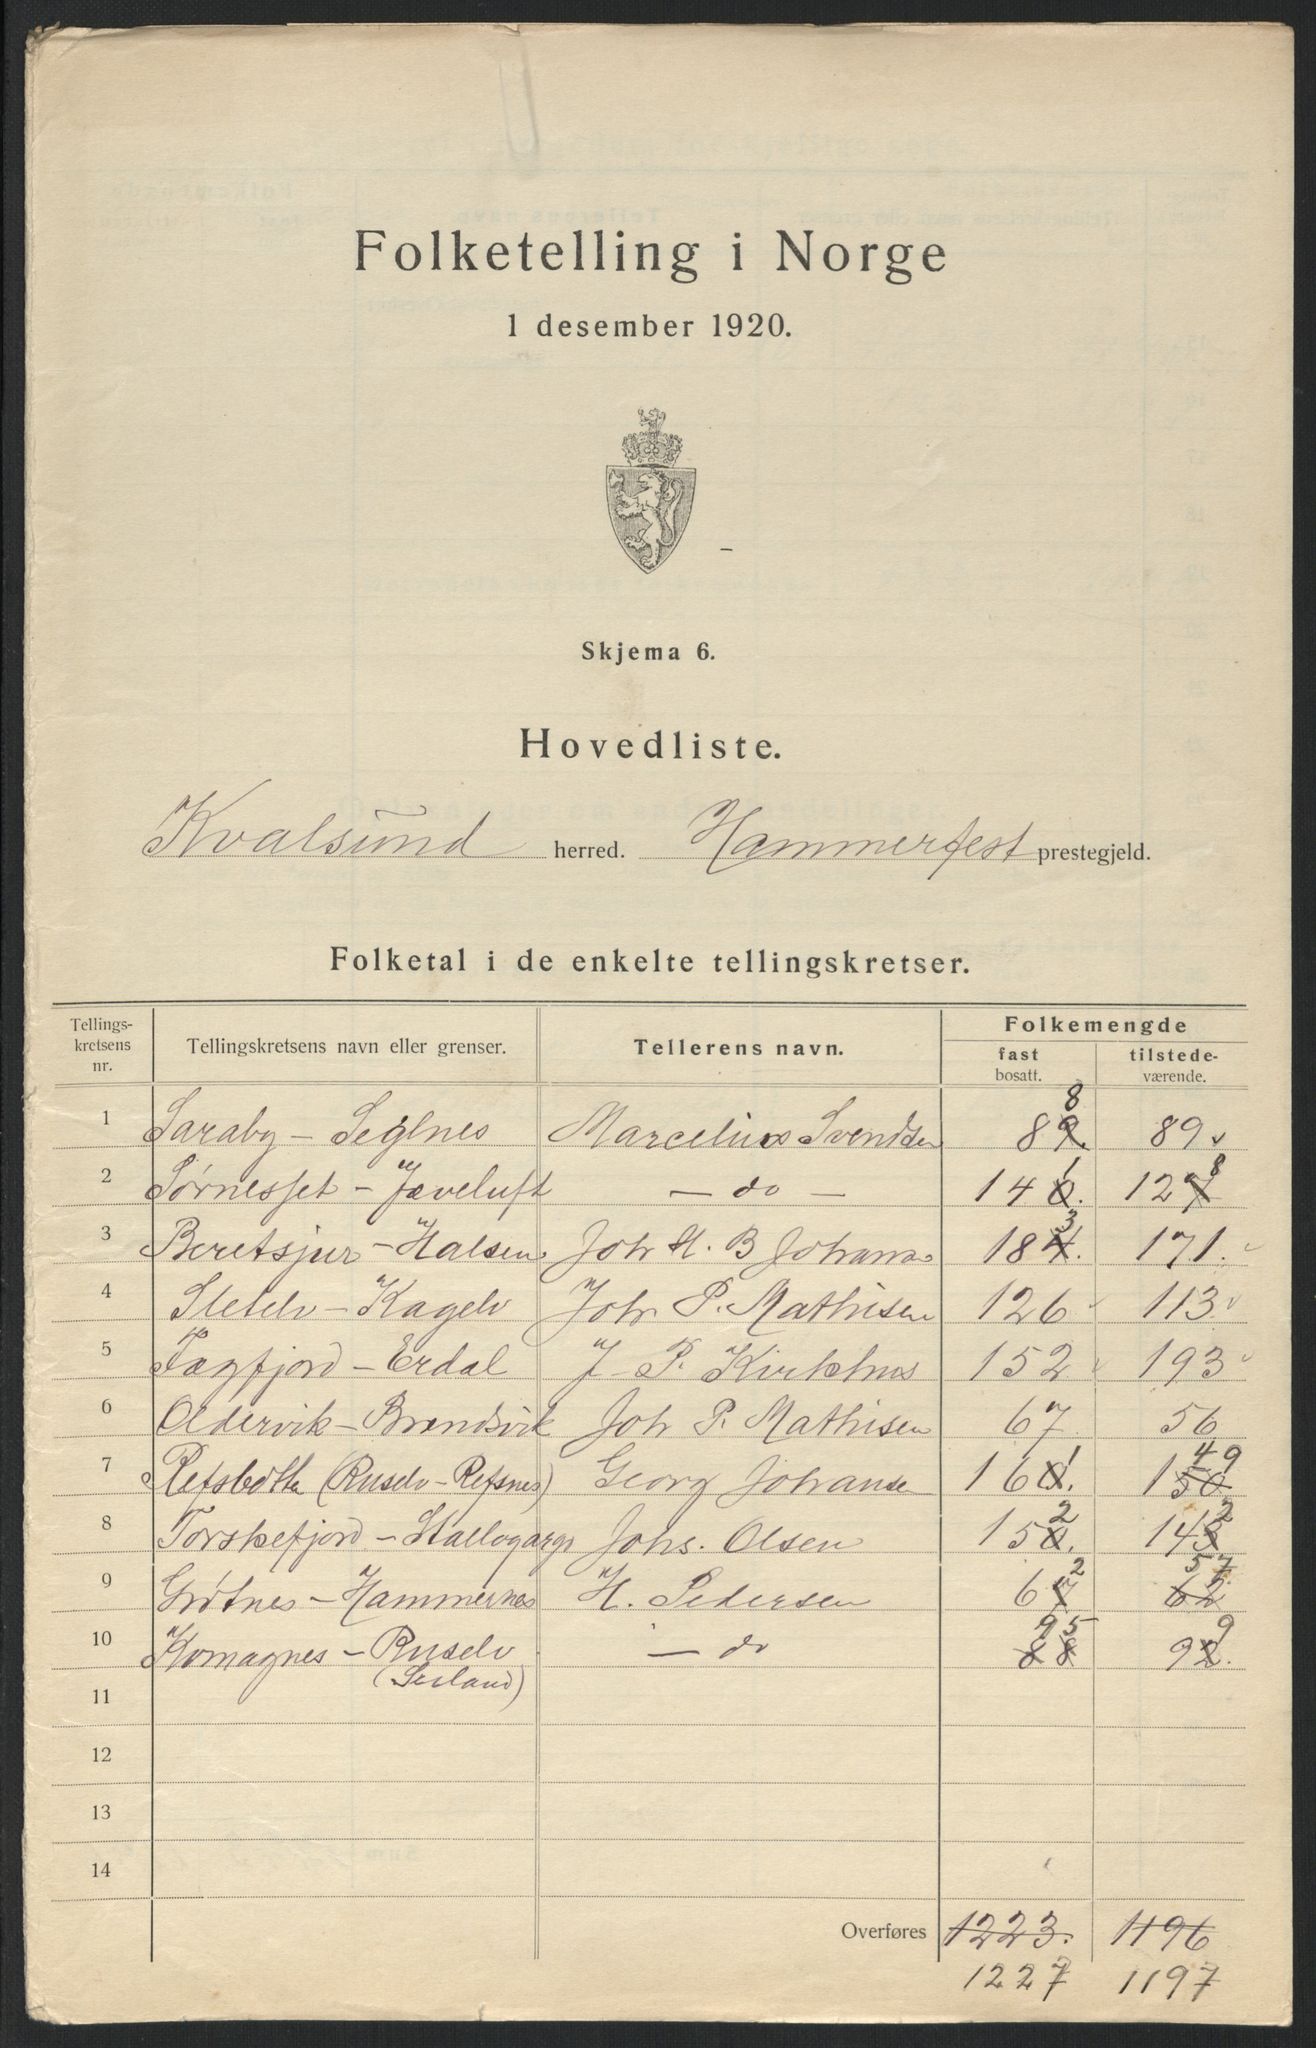 Folketelling i Norge
1 desember 1920.
Skjema 6.
Hovedliste.
Kvalsund herred. Hammerfest prestegjeld.
Folketal i de enkelte tellingskretser.
Tellings-kretsens nr. Tellingskretsens navn eller grenser. Tellerens navn. Folkemengde
fast bosatt. tilstede-værende.
1 Saraby - Seglnes Marcelius Svendsen 88 89
2 Sørnesset - Jæveluft - do - 141 128
3 Beretsjur - Halsen Joh H. B Johanna 183 171.
4 Stetelv - Kagelv Joh P. Mathisen 126 113
5 Fægfjord - Erdal J. P. Kirkhus 152 193
6 Oldervik - Brendsvik Joh P. Mathisen 67 56
7 Refsbotten (Ruselv - Refsnes) Georg Johansen 161. 149
8 Torskefjord - Stallogargo Johs. Olsen 152 142
9 Grøtnes - Hammernes H. Pedersen 62 57
10 Komagnes - Ruselv - do 95 99
(Seiland)
11
12
13
14
Overføres 1223. 1196
1227 1197